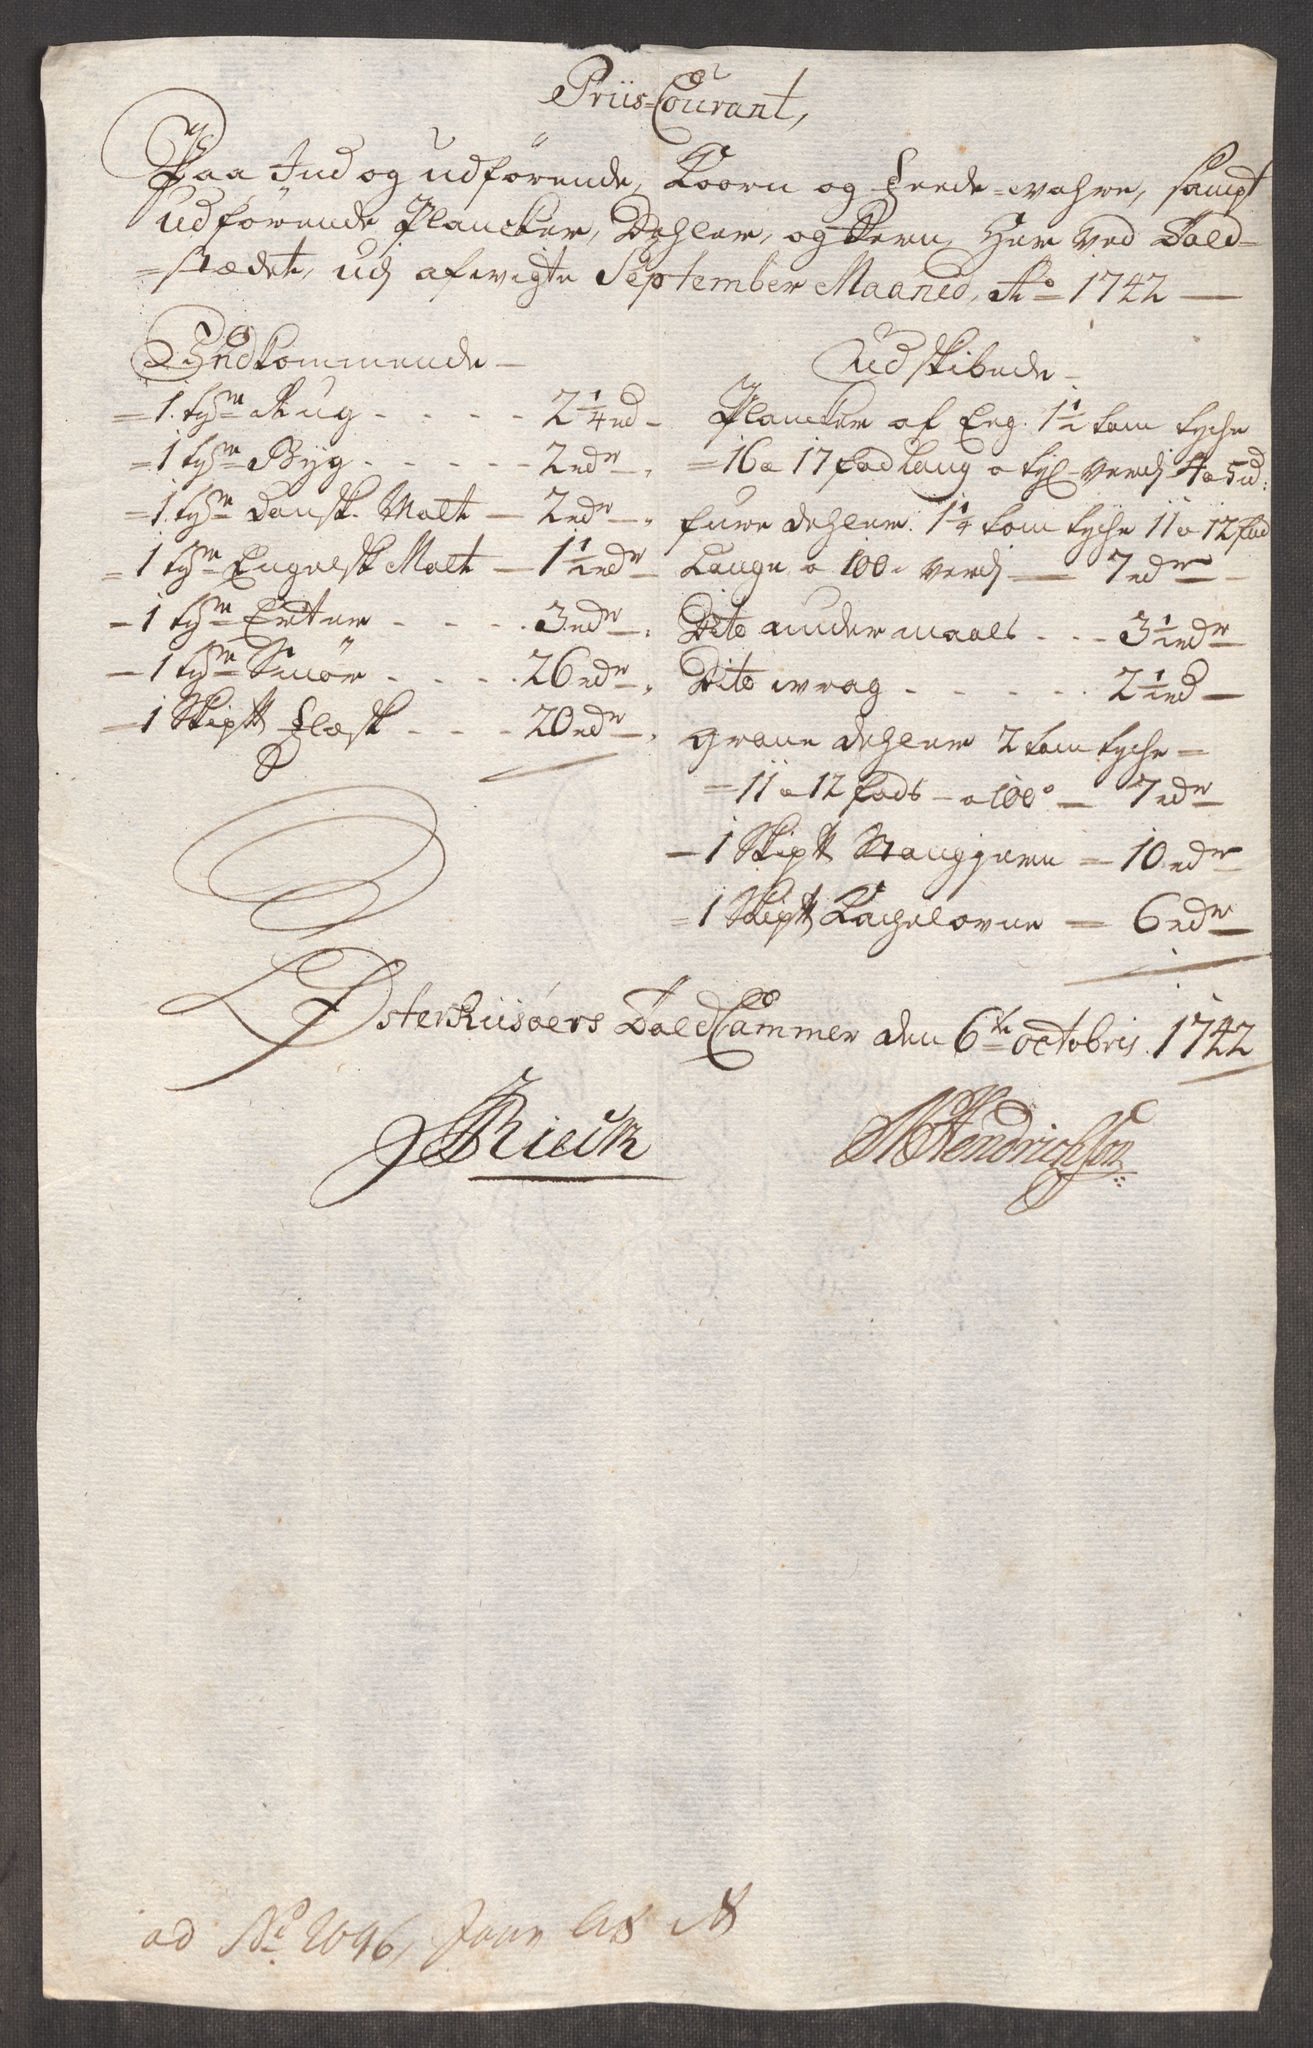 Priis-Courant,
Paa Ind og udförende, Koorn og feede-wahre, sampt
udförende Plancker, Dehler, og Jern, Her ved Told-
=stædet, udj afvigte September Maaned, Ao 1742 —
Indkommende —
=1. tyne Rug - - - - 2 1/4 rd —
=1 tyne Byg - - - - - 2 rdr —
=1. tyne Dansk Malt — 2 rdr —
=1 tyne Engelsk Malt — 1 1/2 rdr —
—1 tyne Erter - - - - 3 rdr —
—1 tyne Smör - - - - 26 rdr —
—1 Skip℔ flæsk - - - 20 rdr —
Udskibede —
Plancker af Eeg. 1 1/2 tom tyche
=16 a 17 fod lang a tyl. verdj 4 a 5 rd:
fure dehler. 1 1/4 tom tyche 11 a 12 fod
Lange, a 100. verdj — 7 rdr —
Dito under maals - - - 3 1/2 rdr
Dito wrag - - - - - 2 1/2 rd —
grane dehler 2 tom tyche =
=11 a 12 fods — a 100 — 7 rdr
—1 Skip℔ Stangjern = 10 rdr
=1 Skip℔ Kachelovne = 6 rdr
Österriisöers Told Cammer den 6te octobris. 1742
Rieck
M Hendrichson
ad No 2096,